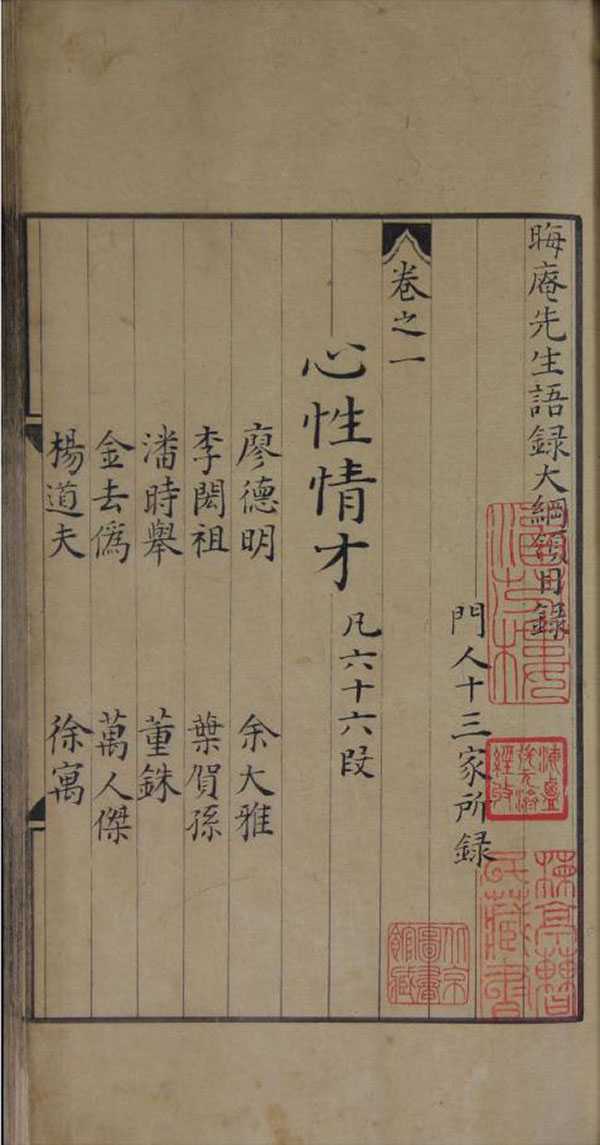 晦庵先生語録大綱領目録
門人十三家所録
卷之一
心性情才
凡六十六段
廖德明 余大雅
李閎祖 葉賀孫
潘時舉 董銖
金去僞 萬人傑
楊道夫 徐㝢
北京圖書館藏